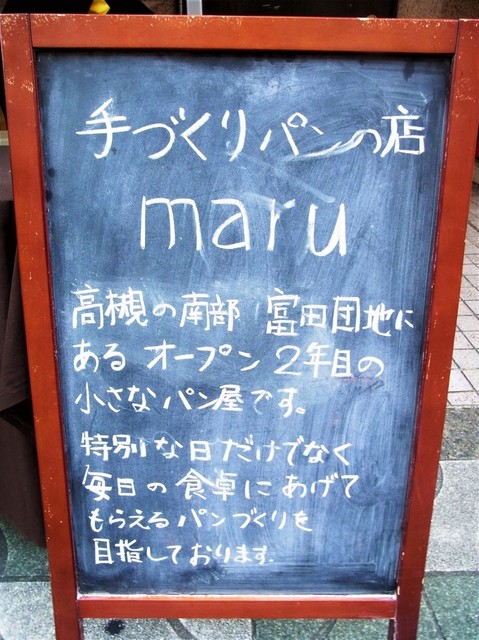 手づくりパンの店
maru
高槻の南部 富田団地に
ある オープン 2年目の
小さなパン屋です。
特別な日だけでなく
毎日の食卓にあげて
もらえるパンづくりを
目指しております.